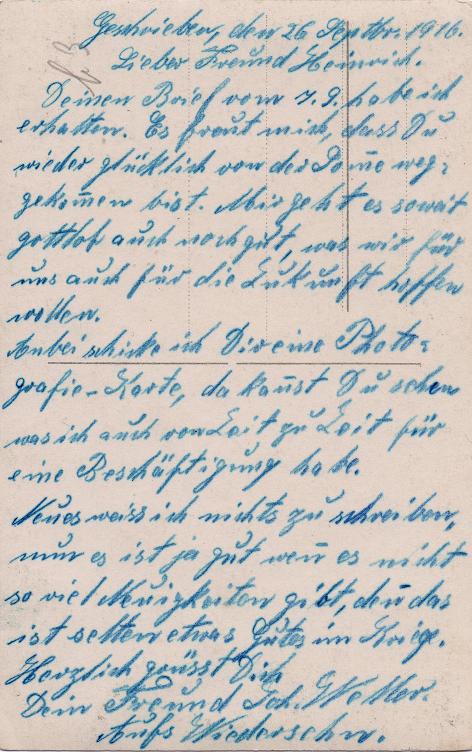 Geschrieben, den 26 Septbr. 1916.
Lieber Freund Heinrich.
Deinen Brief vom 7. 9. habe ich
erhalten. Es freut mich, dass Du
wieder glücklich von der Som̄e weg-
gekom̄en bist. Mir geht es soweit
gottlob auch noch gut, was wir für
uns auch für die Zukunft hoffen
wollen.
Anbei schicke ich Dir eine Photo-
grafie-Karte, da kan̄st Du sehen
was ich auch von Zeit zu Zeit für
eine Beschäftigung habe.
Neues weiss ich nichts zu schreiben,
nur es ist ja gut wen̄ es nicht
so viel Neuigkeiten gibt, den̄ das
ist selten etwas Gutes im Kriege.
Herzlich grüsst Dich
Dein Freund Joh. Weller.
Aufs Wiedersehn.